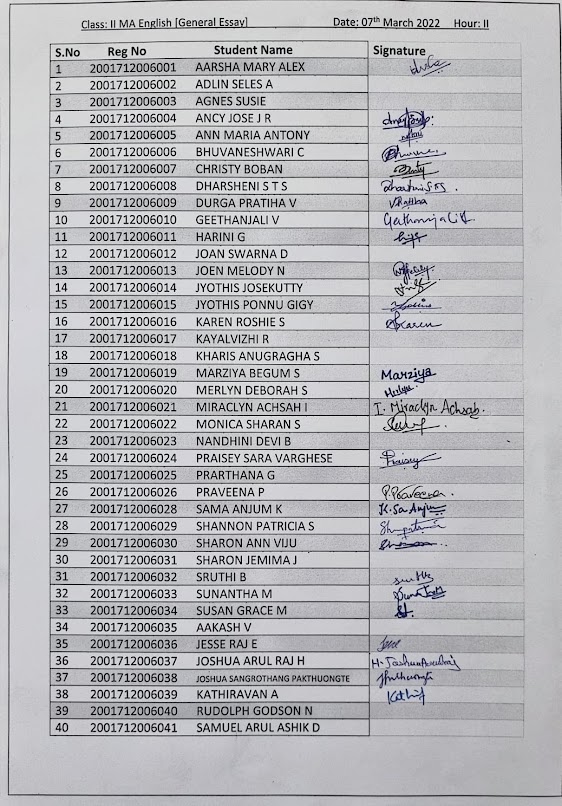 Class: II MA English [General Essay] Date: 07th March 2022 Hour: II
S.No Reg No Student Name Signature
1 2001712006001 AARSHA MARY ALEX
2 2001712006002 ADLIN SELES A
3 2001712006003 AGNES SUSIE
4 2001712006004 ANCY JOSE J R
5 2001712006005 ANN MARIA ANTONY
6 2001712006006 BHUVANESHWARI C
7 2001712006007 CHRISTY BOBAN
8 2001712006008 DHARSHENI S T S
9 2001712006009 DURGA PRATIHA V
10 2001712006010 GEETHANJALI V
11 2001712006011 HARINI G
12 2001712006012 JOAN SWARNA D
13 2001712006013 JOEN MELODY N
14 2001712006014 JYOTHIS JOSEKUTTY
15 2001712006015 JYOTHIS PONNU GIGY
16 2001712006016 KAREN ROSHIE S Karen
17 2001712006017 KAYALVIZHI R
18 2001712006018 KHARIS ANUGRAGHA S
19 2001712006019 MARZIYA BEGUM S Marziya
20 2001712006020 MERLYN DEBORAH S Merlyn
21 2001712006021 MIRACLYN ACHSAH I I. Miraclyn Achsah.
22 2001712006022 MONICA SHARAN S
23 2001712006023 NANDHINI DEVI B
24 2001712006024 PRAISEY SARA VARGHESE Praisey
25 2001712006025 PRARTHANA G
26 2001712006026 PRAVEENA P P.Praveena.
27 2001712006028 SAMA ANJUM K K.Sa Anjum
28 2001712006029 SHANNON PATRICIA S
29 2001712006030 SHARON ANN VIJU
30 2001712006031 SHARON JEMIMA J
31 2001712006032 SRUTHI B
32 2001712006033 SUNANTHA M
33 2001712006034 SUSAN GRACE M
34 2001712006035 AAKASH V
35 2001712006036 JESSE RAJ E
36 2001712006037 JOSHUA ARUL RAJ H H. Joshua Arulraj
37 2001712006038 JOSHUA SANGROTHANG PAKTHUONGTE
38 2001712006039 KATHIRAVAN A
39 2001712006040 RUDOLPH GODSON N
40 2001712006041 SAMUEL ARUL ASHIK D